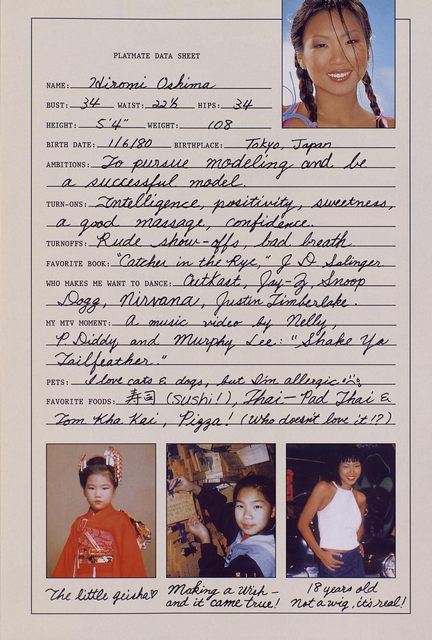 PLAYMATE DATA SHEET
NAME: Hiromi Oshima
BUST: 34 WAIST: 22½ HIPS: 34
HEIGHT: 5'4" WEIGHT: 108
BIRTH DATE: 1/6/80 BIRTHPLACE: Tokyo, Japan
AMBITIONS: To pursue modeling and be
a successful model.
TURN-ONS: Intelligence, positivity, sweetness,
a good massage, confidence.
TURNOFFS: Rude show-offs, bad breath
FAVORITE BOOK: "Catcher in the Rye," J D Salinger
WHO MAKES ME WANT TO DANCE: OutKast, Jay-Z, Snoop
Dogg, Nirvana, Justin Timberlake.
MY MTV MOMENT: A music video by Nelly,
P. Diddy and Murphy Lee: "Shake Ya
Tailfeather."
PETS: I love cats & dogs, but I'm allergic
FAVORITE FOODS: 寿司 (Sushi!), Thai - Pad Thai &
Tom Kha Kai, Pizza! (Who doesn't love it!?)
The little geisha♡
Making a wish-
and it came true!
18 years old
Not a wig, it's real!